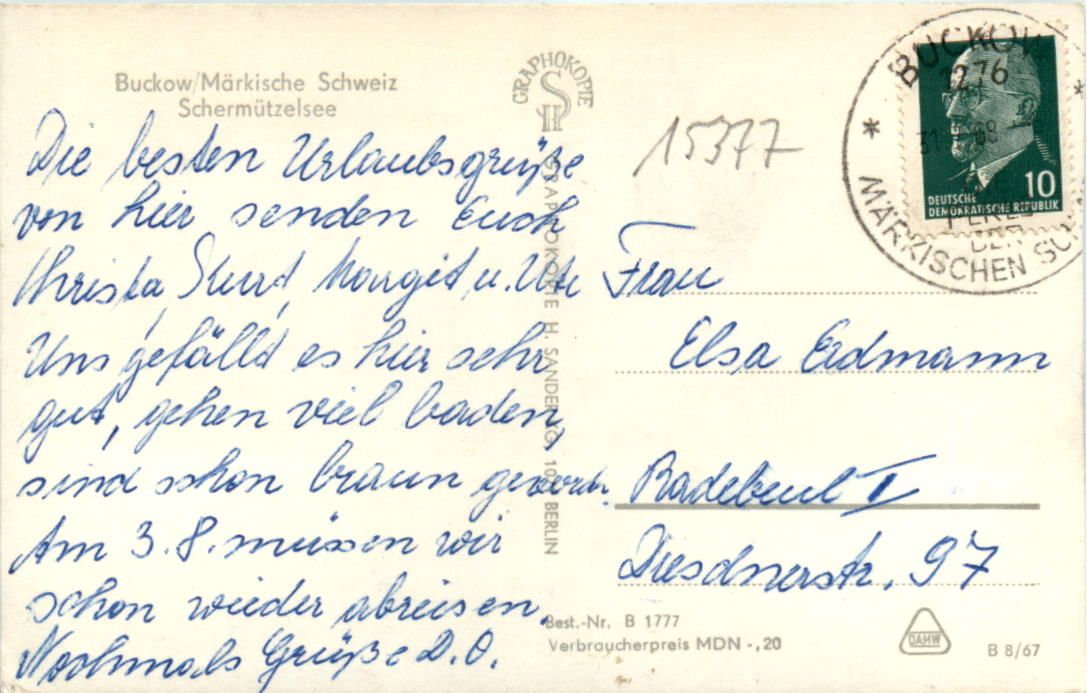 Buckow/Märkische Schweiz
Schermützelsee
Die besten Urlaubsgrüße
von hier senden Euch
Christa, Kurt, Margit u. Ute
Uns gefällt es hier sehr
gut, gehen viel baden,
sind schon braun geword.
Am 3.8. müssen wir
schon wieder abreisen.
Nochmals Grüße D.O.
GRAPHOKOPIE
SH
GRAPHOKOPIE H. SANDER KG, BERLIN
15377
BUCKOW
1276
MÄRKISCHEN
PERLE
DER
10
DEUTSCHE
DEMOKRATISCHE REPUBLIK
Frau
Elsa Erdmann
Radebeul I
Dresdnerstr. 97
Best.-Nr. B 1777
Verbraucherpreis MDN -,20
DAMW
B 8/67